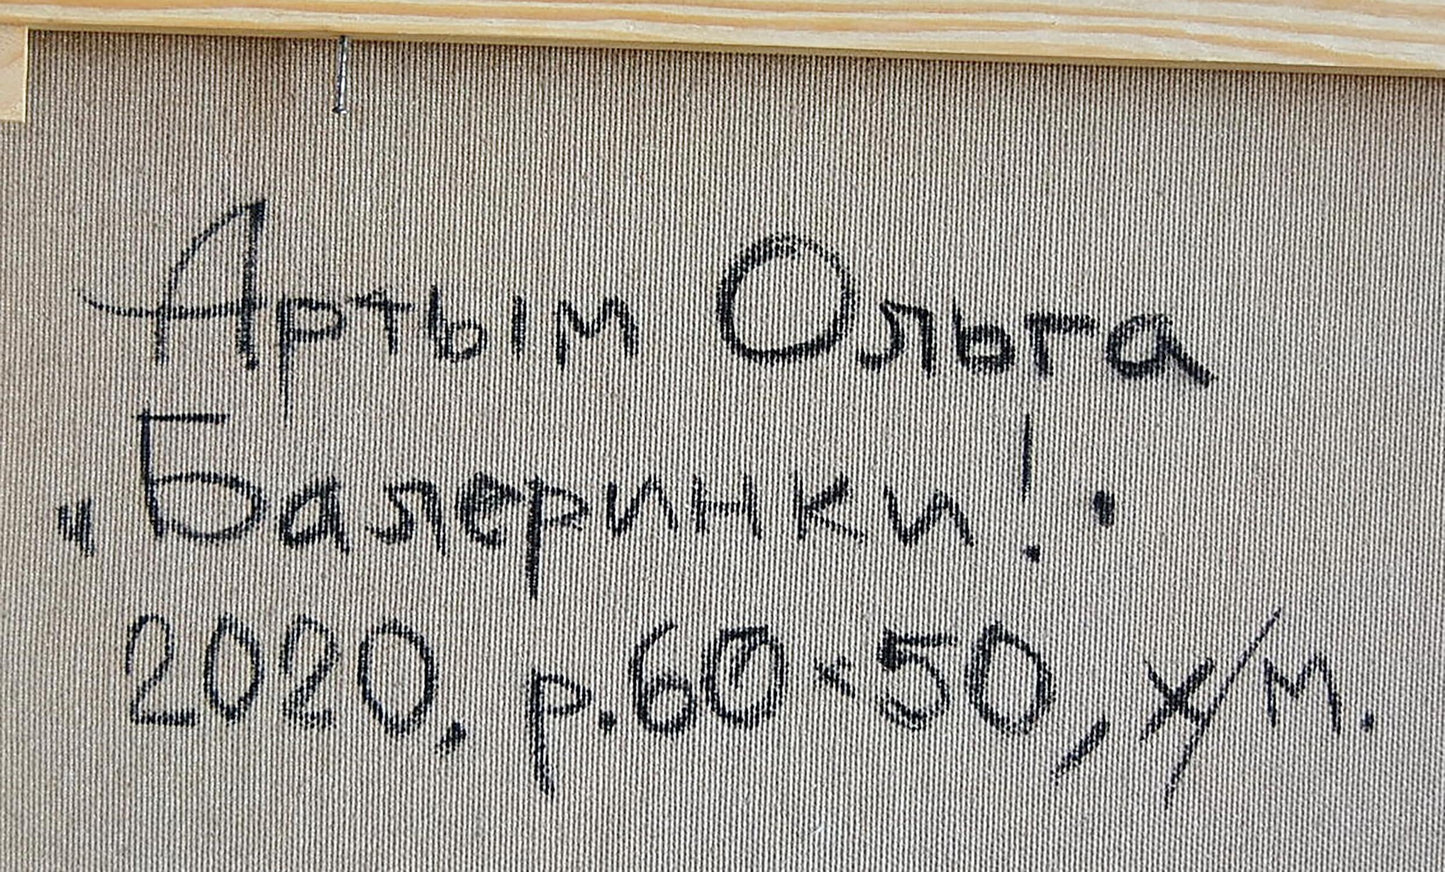 Артым Ольга
„Балеринки!.
2020. р. 60×50, х/м.